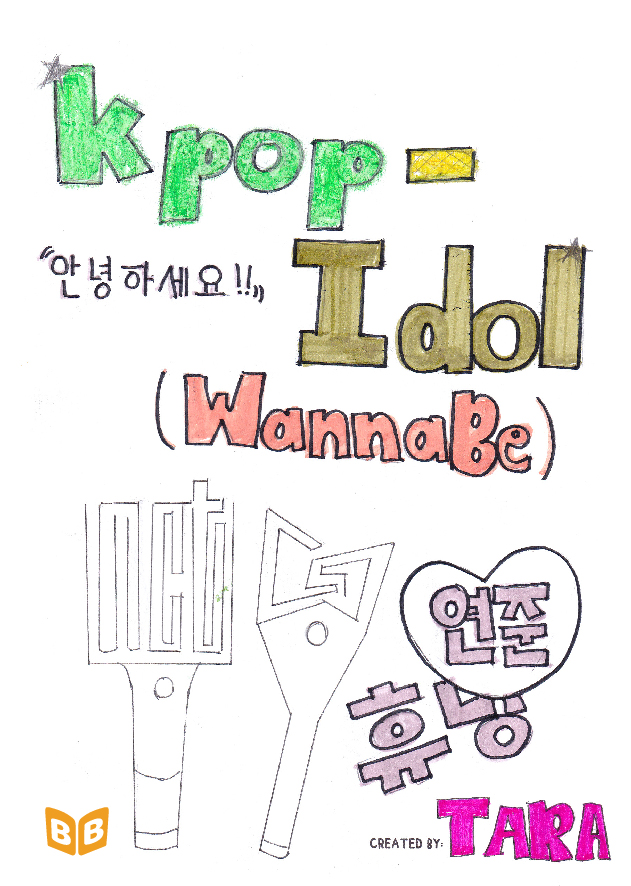 kpop-
“안녕하세요!!„
Idol
(WannaBe)
nct
연준
휴닝
BB
CREATED BY: TARA